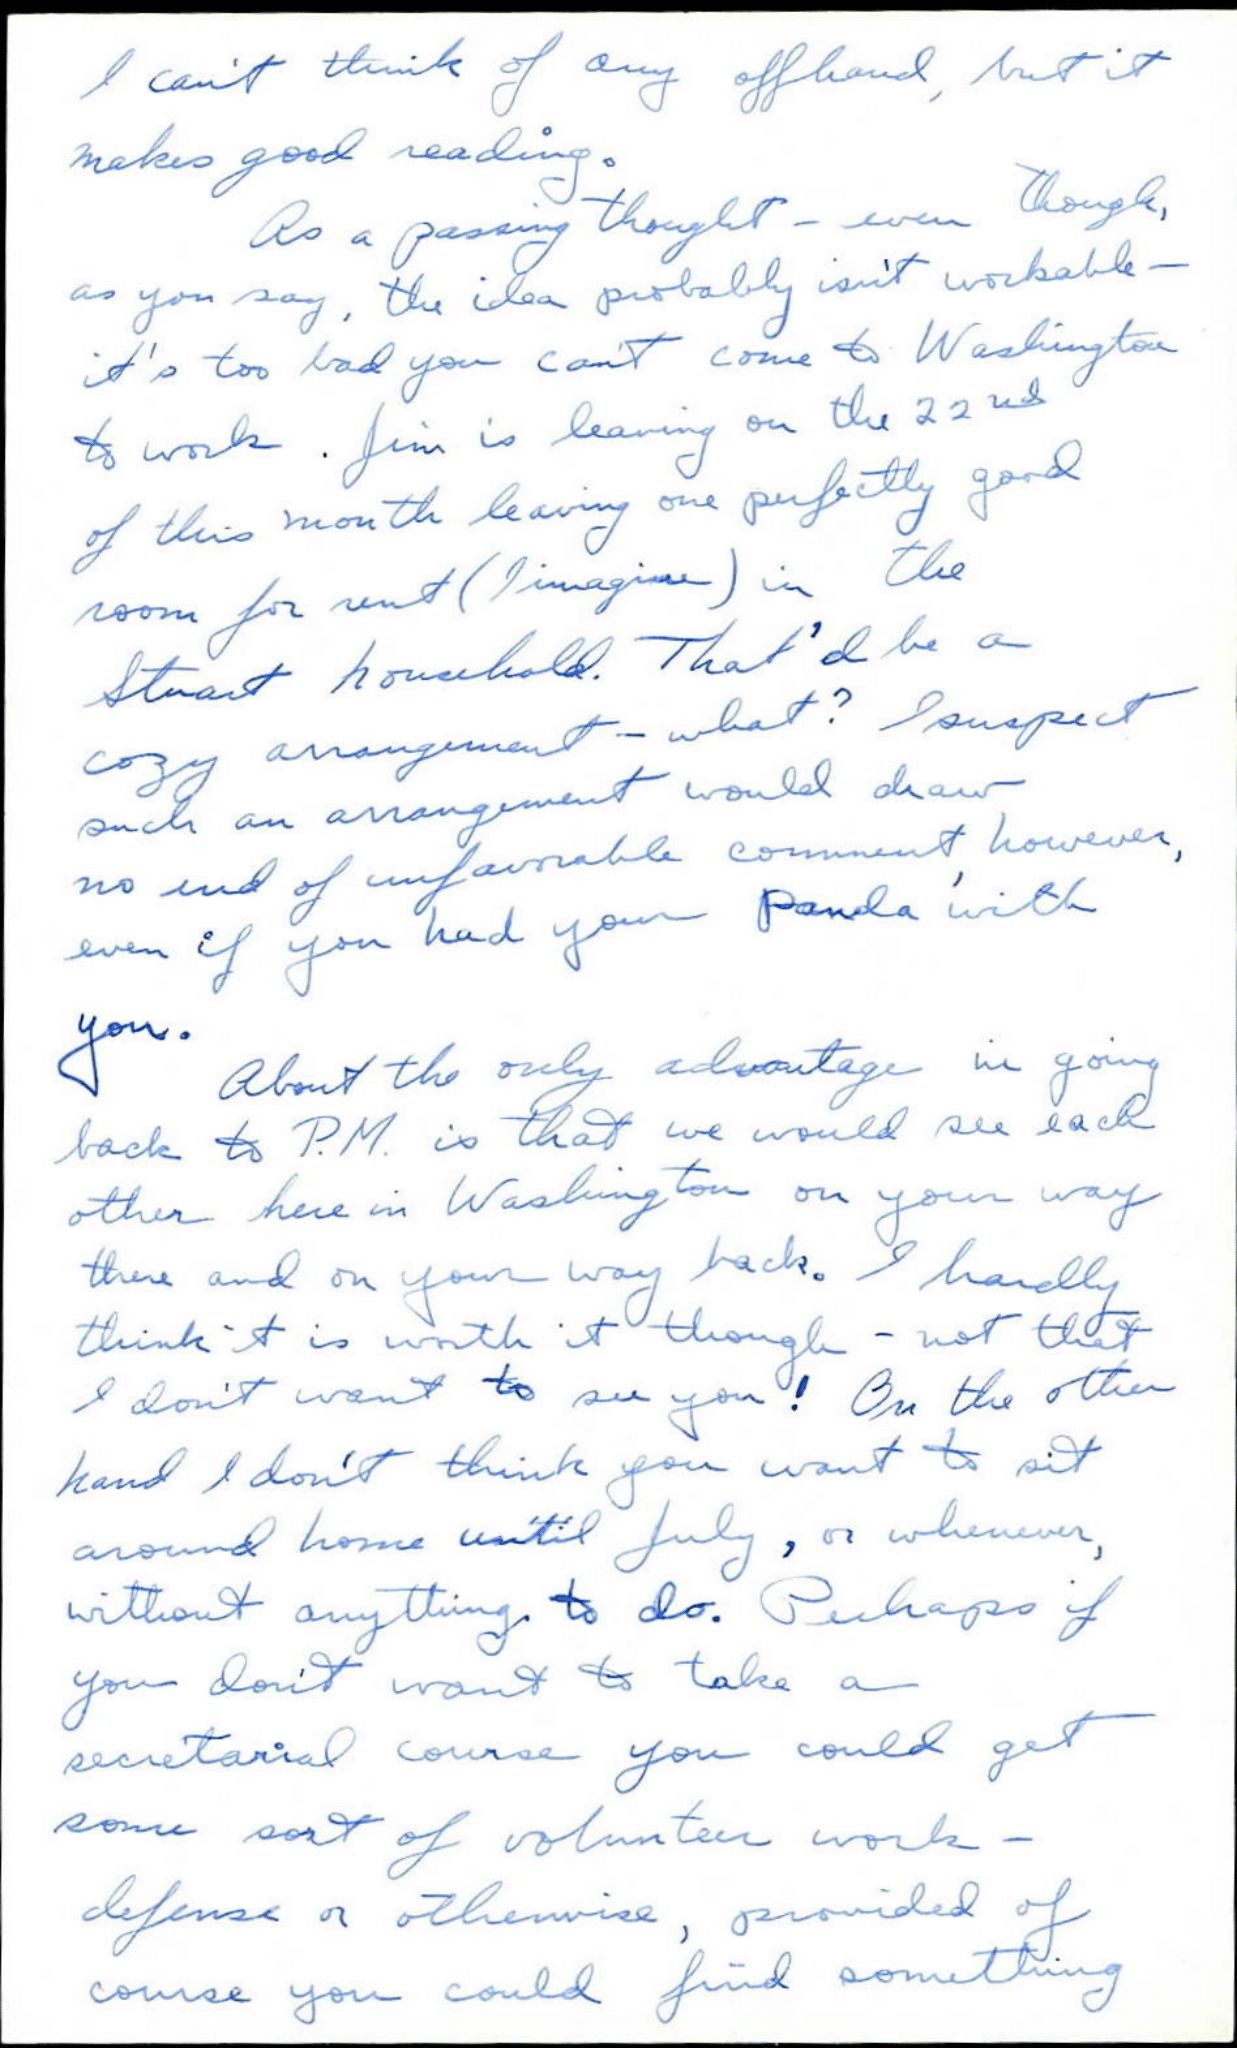 I can't think of any offhand, but it
makes good reading.
As a passing thought - even though,
as you say, the idea probably isn't workable -
it's too bad you can't come to Washington
to work. Jim is leaving on the 22nd
of this month leaving one perfectly good
room for rent (I imagine) in the
Stuart household. That'd be a
cozy arrangement - what? I suspect
such an arrangement would draw
no end of unfavorable comment, however,
even if you had your Panda with
you.
About the only advantage in going
back to P.M. is that we would see each
other here in Washington on your way
there and on your way back. I hardly
think it is worth it though - not that
I don't want to see you! On the other
hand I don't think you want to sit
around home until July, or whenever,
without anything to do. Perhaps if
you don't want to take a
secretarial course you could get
some sort of volunteer work -
defense or otherwise, provided of
course you could find something